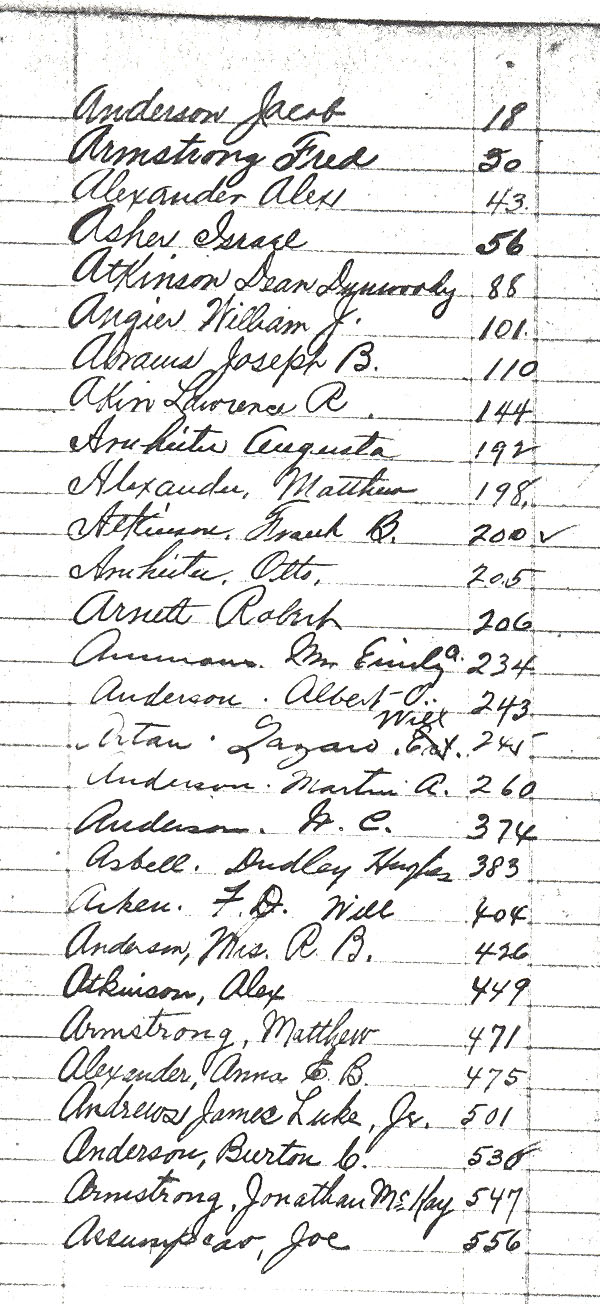 Anderson Jacob 18
Armstrong Fred 30
Alexander Alex 43
Asher Israel 56
Atkinson Dean Dunwoody 88
Angier William J. 101
Abrams Joseph B. 110
Akin Lawrence R. 144
Augusta 192
Alexander, Matthew 198
Atkinson, Frank B. 200 ✓
Otto, 205
Arnett Robert 206
Emily A. 234
Anderson. Albert 243
Will
Artau. Lazaro. Ext. 245
Anderson. Martin A. 260
Anderson. W. C. 374
Asbell. Dudley Hughes 383
Aiken. F. D. Will 404
Anderson, Mrs. R B. 426
Atkinson, Alex 449
Armstrong, Matthew 471
Alexander, Anna E B. 475
Andrews James Luke, Jr. 501
Anderson, Burton C. 530
Armstrong, Jonathan McKay 547
Assumpcao, Joe 556